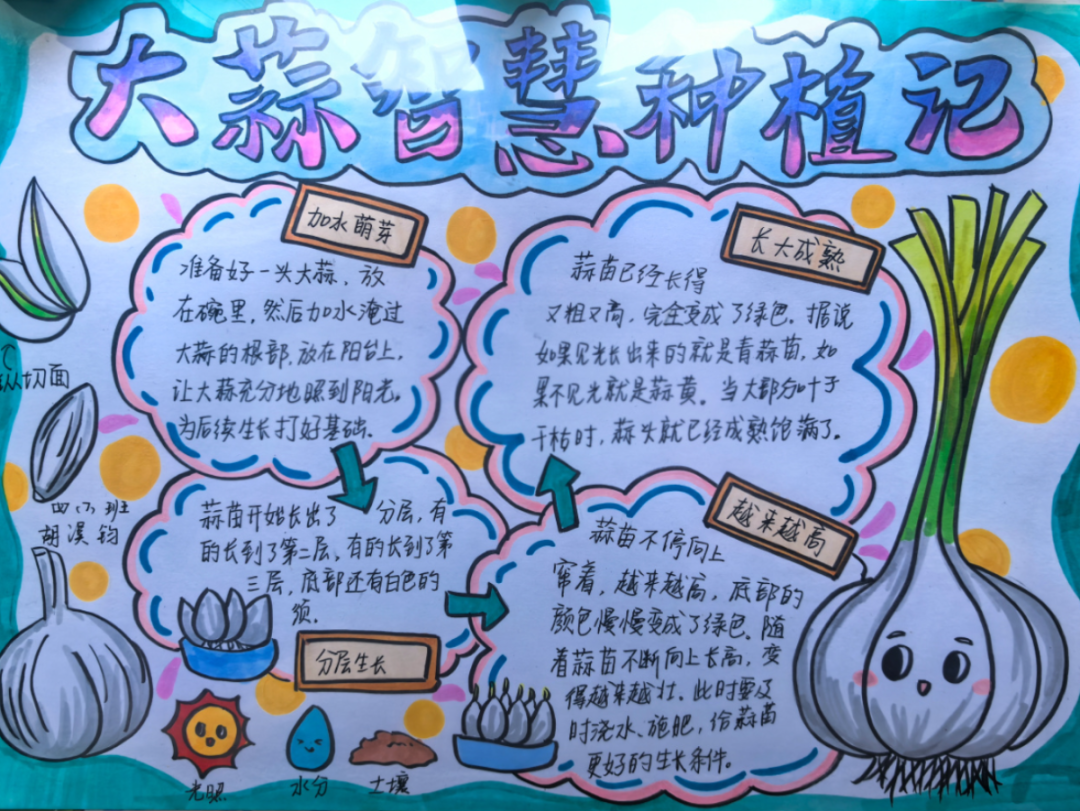 大蒜智慧种植记
加水萌芽
准备好一头大蒜、放
在碗里，然后加水淹过
大蒜的根部，放在阳台上，
让大蒜充分地照到阳光。
为后续生长打好基础.
长大成熟
蒜苗已经长得
又粗又高，完全变成了绿色。据说
如果见光长出来的就是青蒜苗，如
果不见光就是蒜黄。当大部分叶子
干枯时，蒜头就已经成熟饱满了。
纵切面
四(7)班
胡淏钧
蒜苗开始长出了 分层，有
的长到了第二层，有的长到了第
三层，底部还有白色的
须.
分层生长
越来越高
蒜苗不停向上
窜着，越来越高，底部的
颜色慢慢变成了绿色。随
着蒜苗不断向上长高，变
得越来越壮、此时要及
时浇水、施肥，给蒜苗
更好的生长条件。
光照
水分
土壤